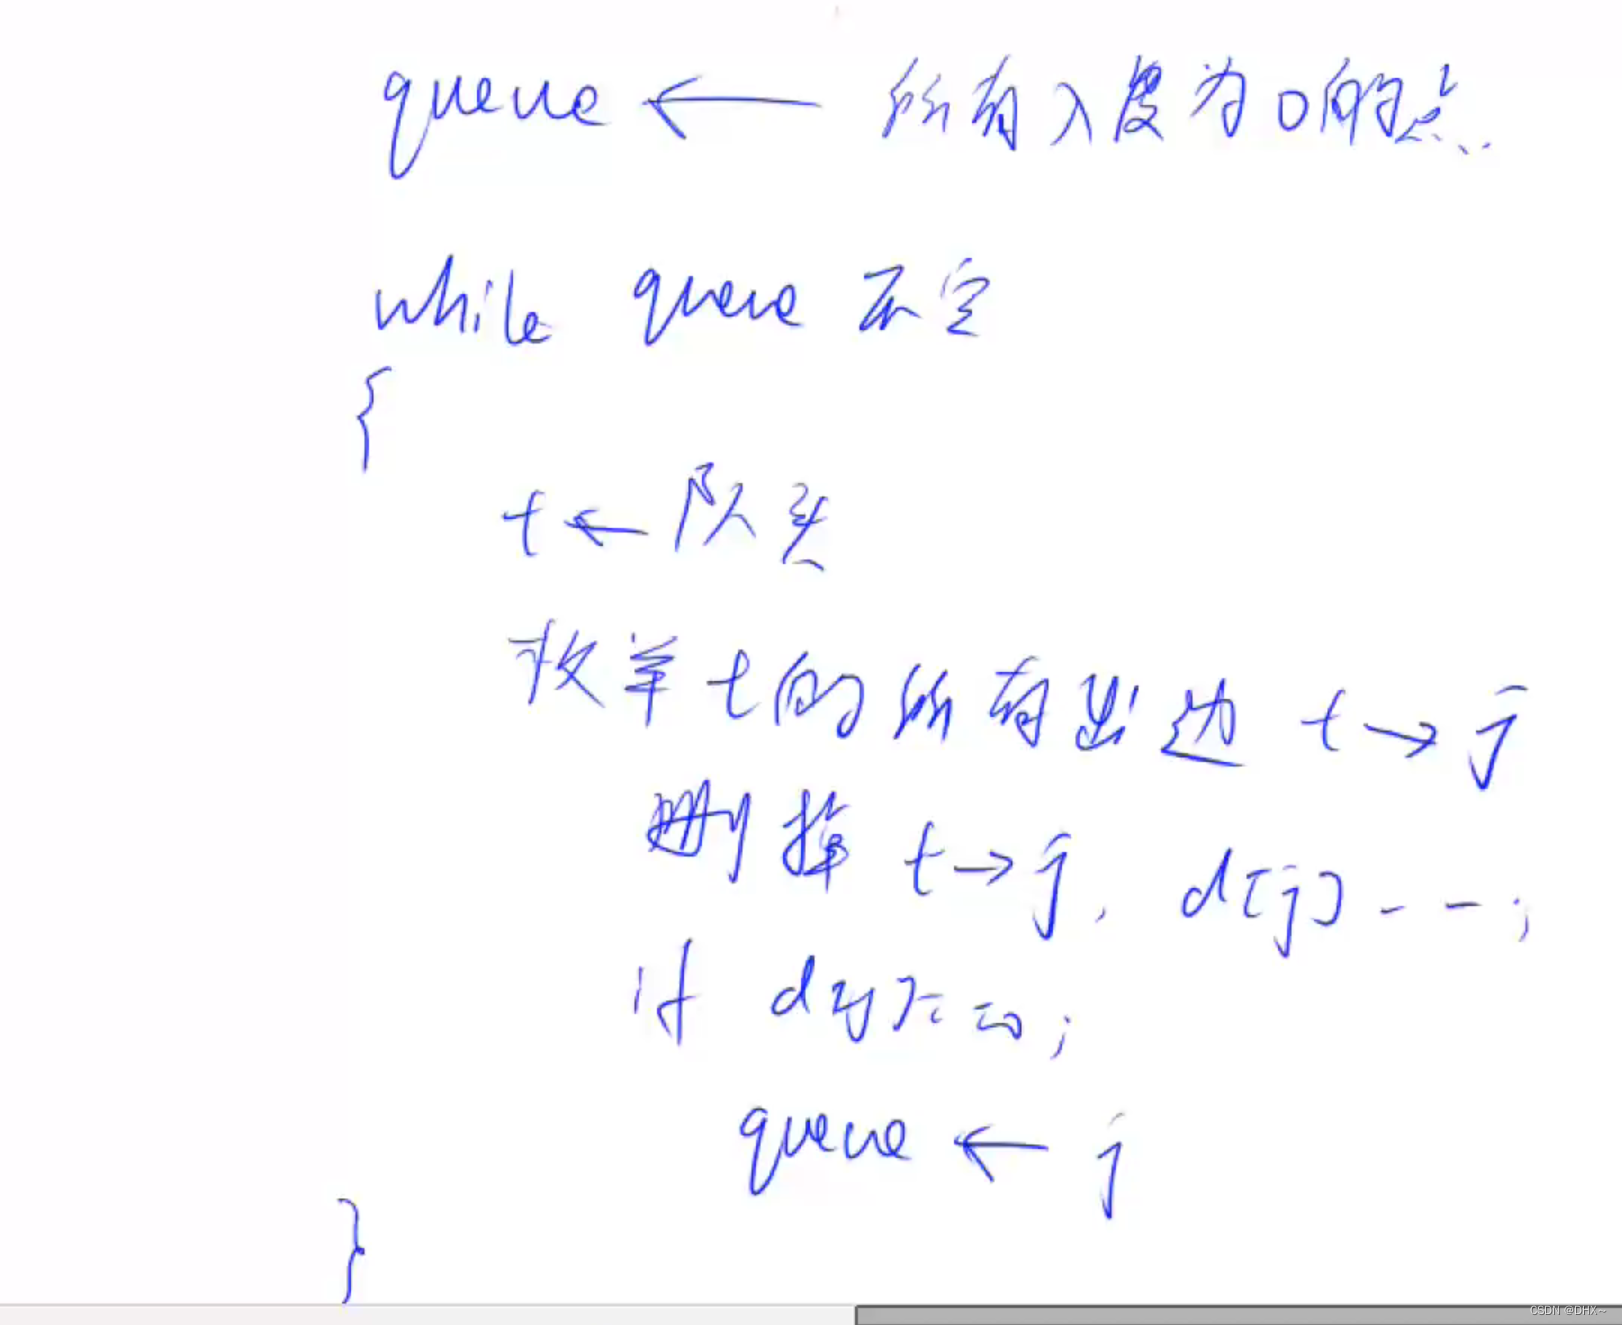 queue ← 所有入度为0的点
while queue 不空
{
t ← 队头
枚举 t 的所有出边 t → j
删掉 t → j, d[j] --;
if d[j] == 0;
queue ← j
}
CSDN @DHX~